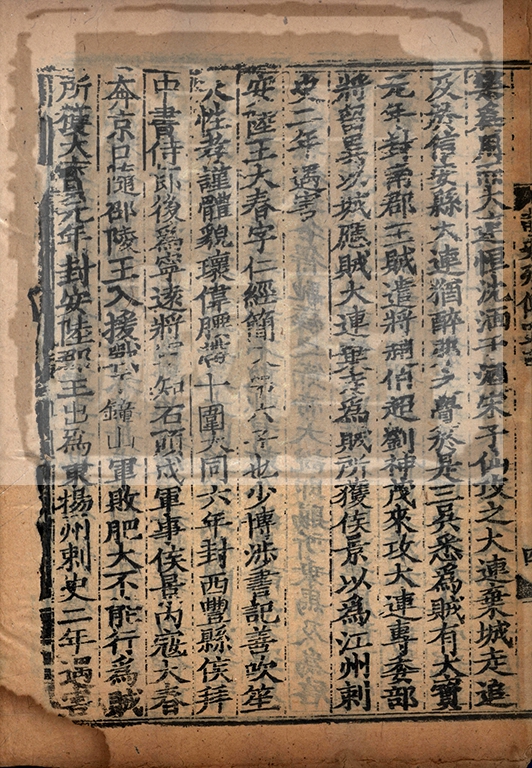 大連惛沈湎于酒宋子仙攻之大連棄城走追
及於信安縣大連猶醉弗之覺於是三吳悉為賊有大寶
元年封南郡王賊遣將趙伯超劉神茂來攻大連專委部
將留異以城應賊大連棄走為賊所獲侯景以為江州刺
史二年遇害
安陸王大春字仁經簡文第六子也少博涉書記善吹笙
天性孝謹體貌瓌偉腰帶十圍大同六年封西豐縣侯拜
中書侍郎後爲寧遠將軍知石頭戍軍事侯景內寇大春
奔京口隨邵陵王入援戰于鐘山軍敗肥大不能行爲賊
所獲大寶元年封安陸郡王出爲東揚州刺史二年遇害